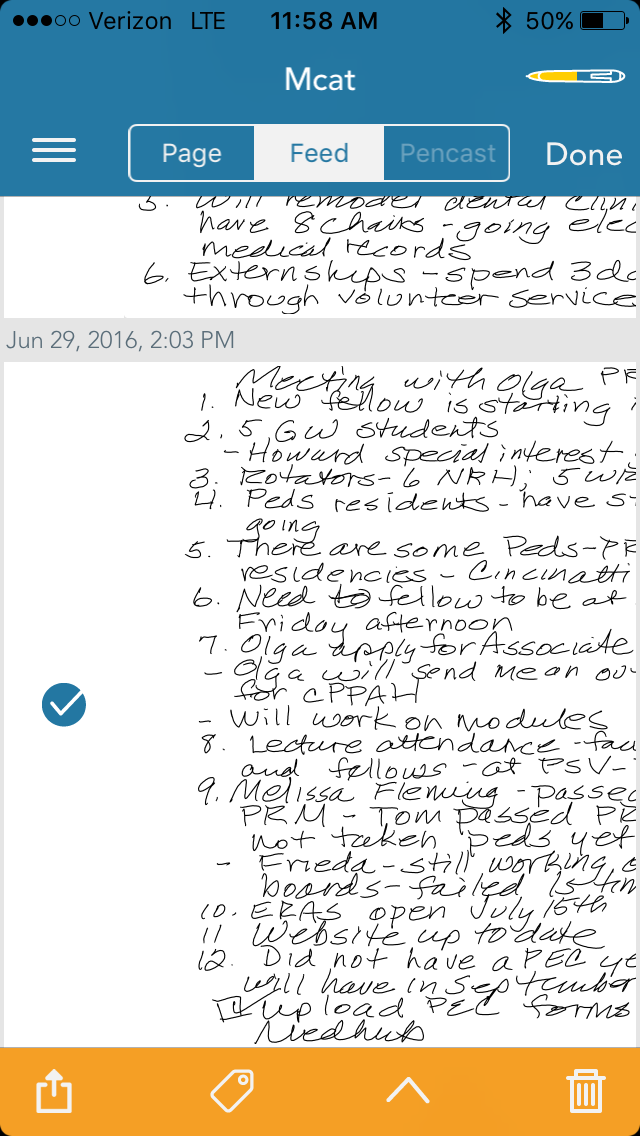 Verizon LTE 11:58 AM 50%
Mcat
Page Feed Pencast Done
5. Will remodel dental clini
have 8 chairs - going elec
medical records
6. Externships - spend 3 da
through volunteer service
Jun 29, 2016, 2:03 PM
Meeting with Olga PR
1. New fellow is starting
2. 5 GW students
- Howard special interest
3. Rotators - 6 NRH; 5 WR
4. Peds residents - have st
going
5. There are some Peds-PR
residencies - Cincinatti
6. Need to fellow to be at
Friday afternoon
7. Olga apply for Associate
- Olga will send mean ou
for CPPAH
- Will work on modules
8. Lecture attendance - facu
and fellows - at PSV-
9. Melissa Fleming - passed
PRM - Tom passed PR
not taken peds yet
- Frieda - still working o
boards - failed 1s tim
10. ERAS open July 15th
11 Website up to date
12. Did not have a PEC ye
will have in September
upload PEC forms
Medhub